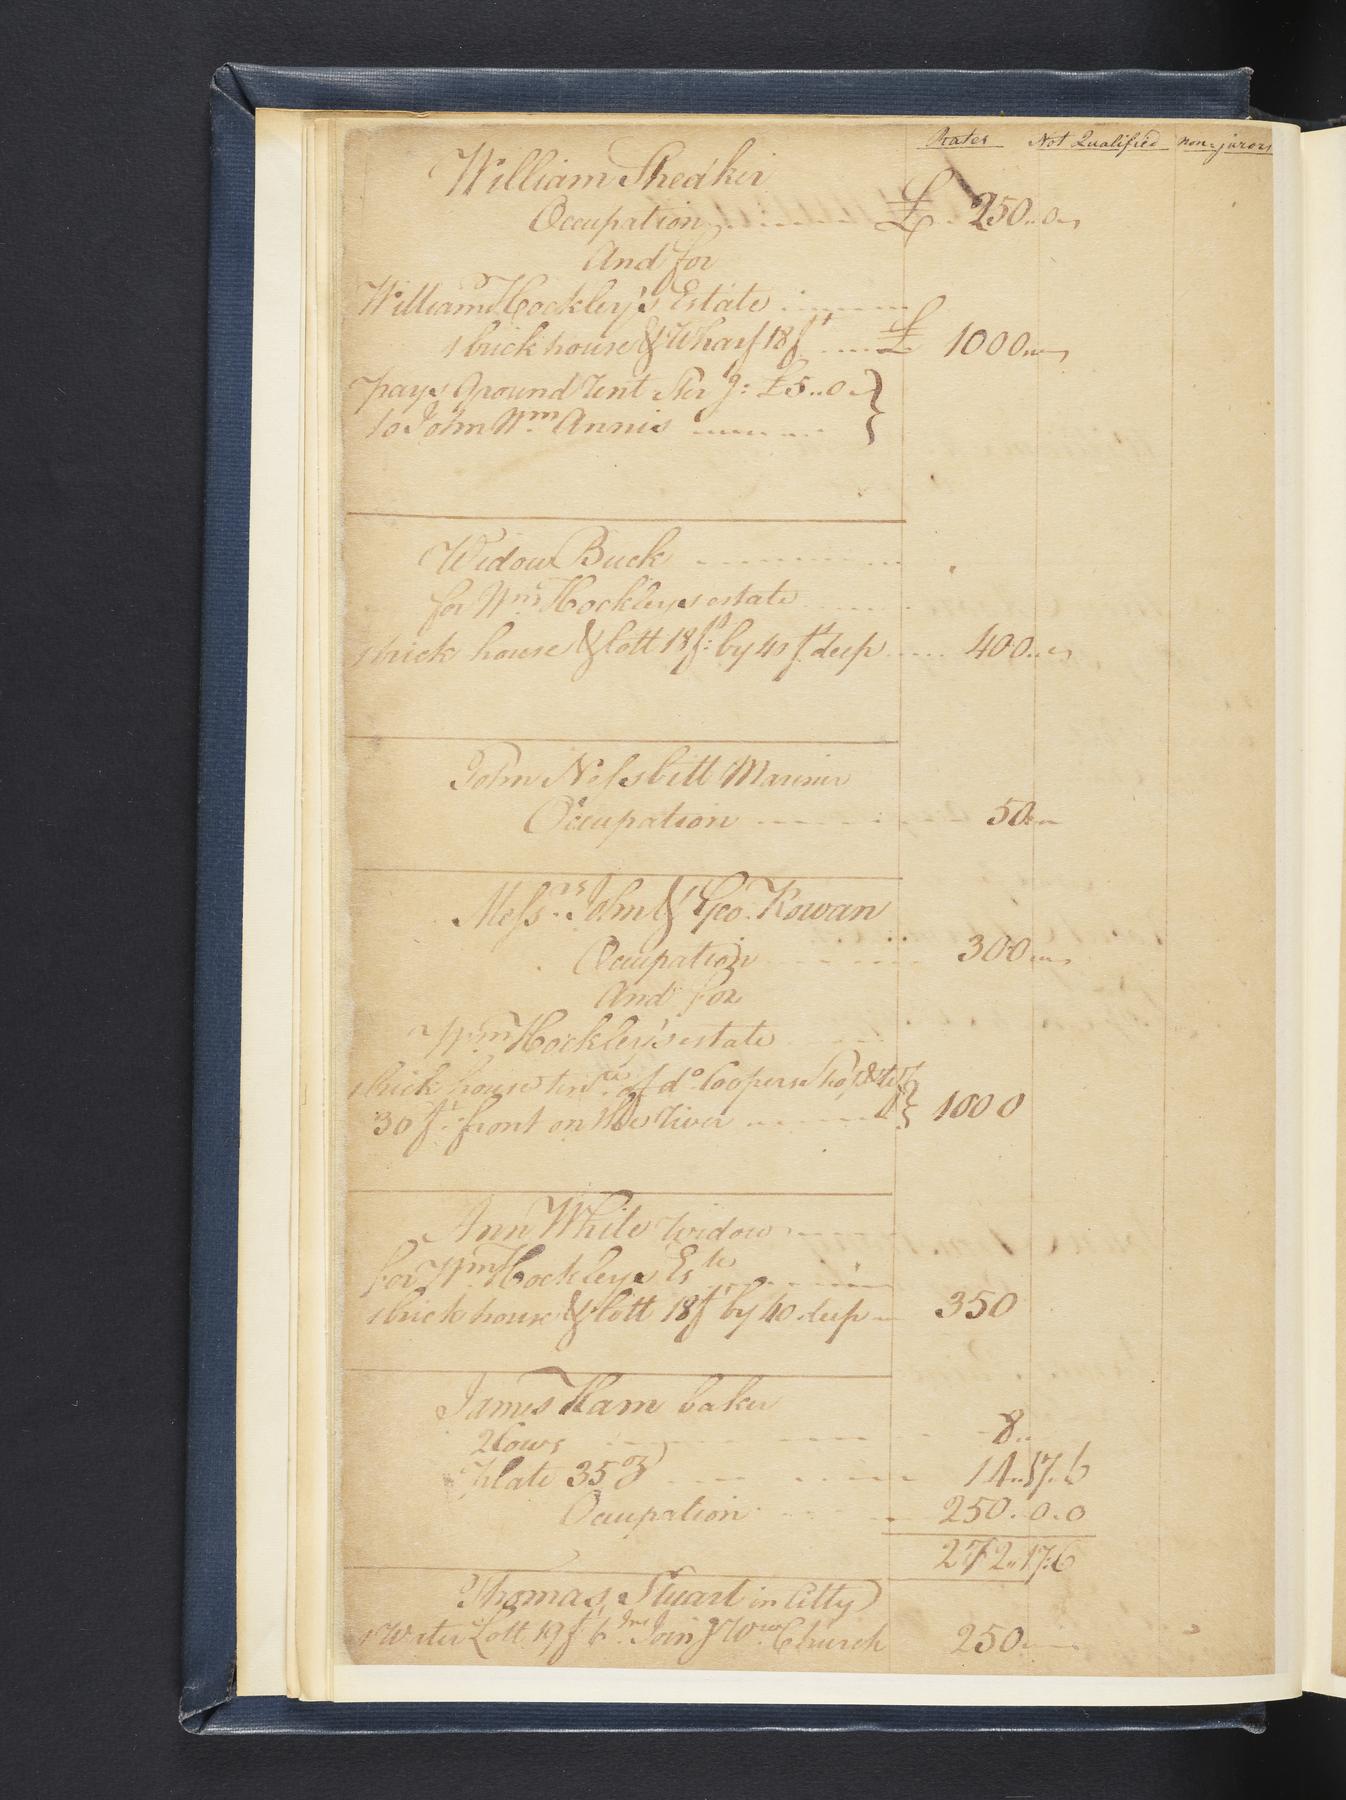 Rates Not Qualified non-jurors
William Sheaker
Occupation ........ £ 250..0..
And for
William Hockley's Estate ........
1 brick house & Wharf 18 ft .... £ 1000..
pays Ground rent £5..0..
to John Wm Annis ........
Widow Buck ........
for Wm Hockleys estate ........
1 brick house & lott 18 ft: by 41 ft deep .... 400..
John Nessbitt Mariner
Occupation ........ 50..
Messrs John & Geo. Rowan
Occupation ........ 300..
And for
Wm Hockley's estate ........
1 brick house do Coopers Shop
30 ft front on the river ........ 1000
Ann White widow ....
for Wm Hockleys Este ........
1 brick house & lott 18 ft by 40 deep .. 350
James Ham baker
2 Cows ........ 8..
Plate 35 oz ........ 14..17..6
Occupation ........ 250..0..0
272..17..6
Thomas Stuart in Citty
1 Water Lott 19 ft 6 Ins Join'g Wm Church 250..